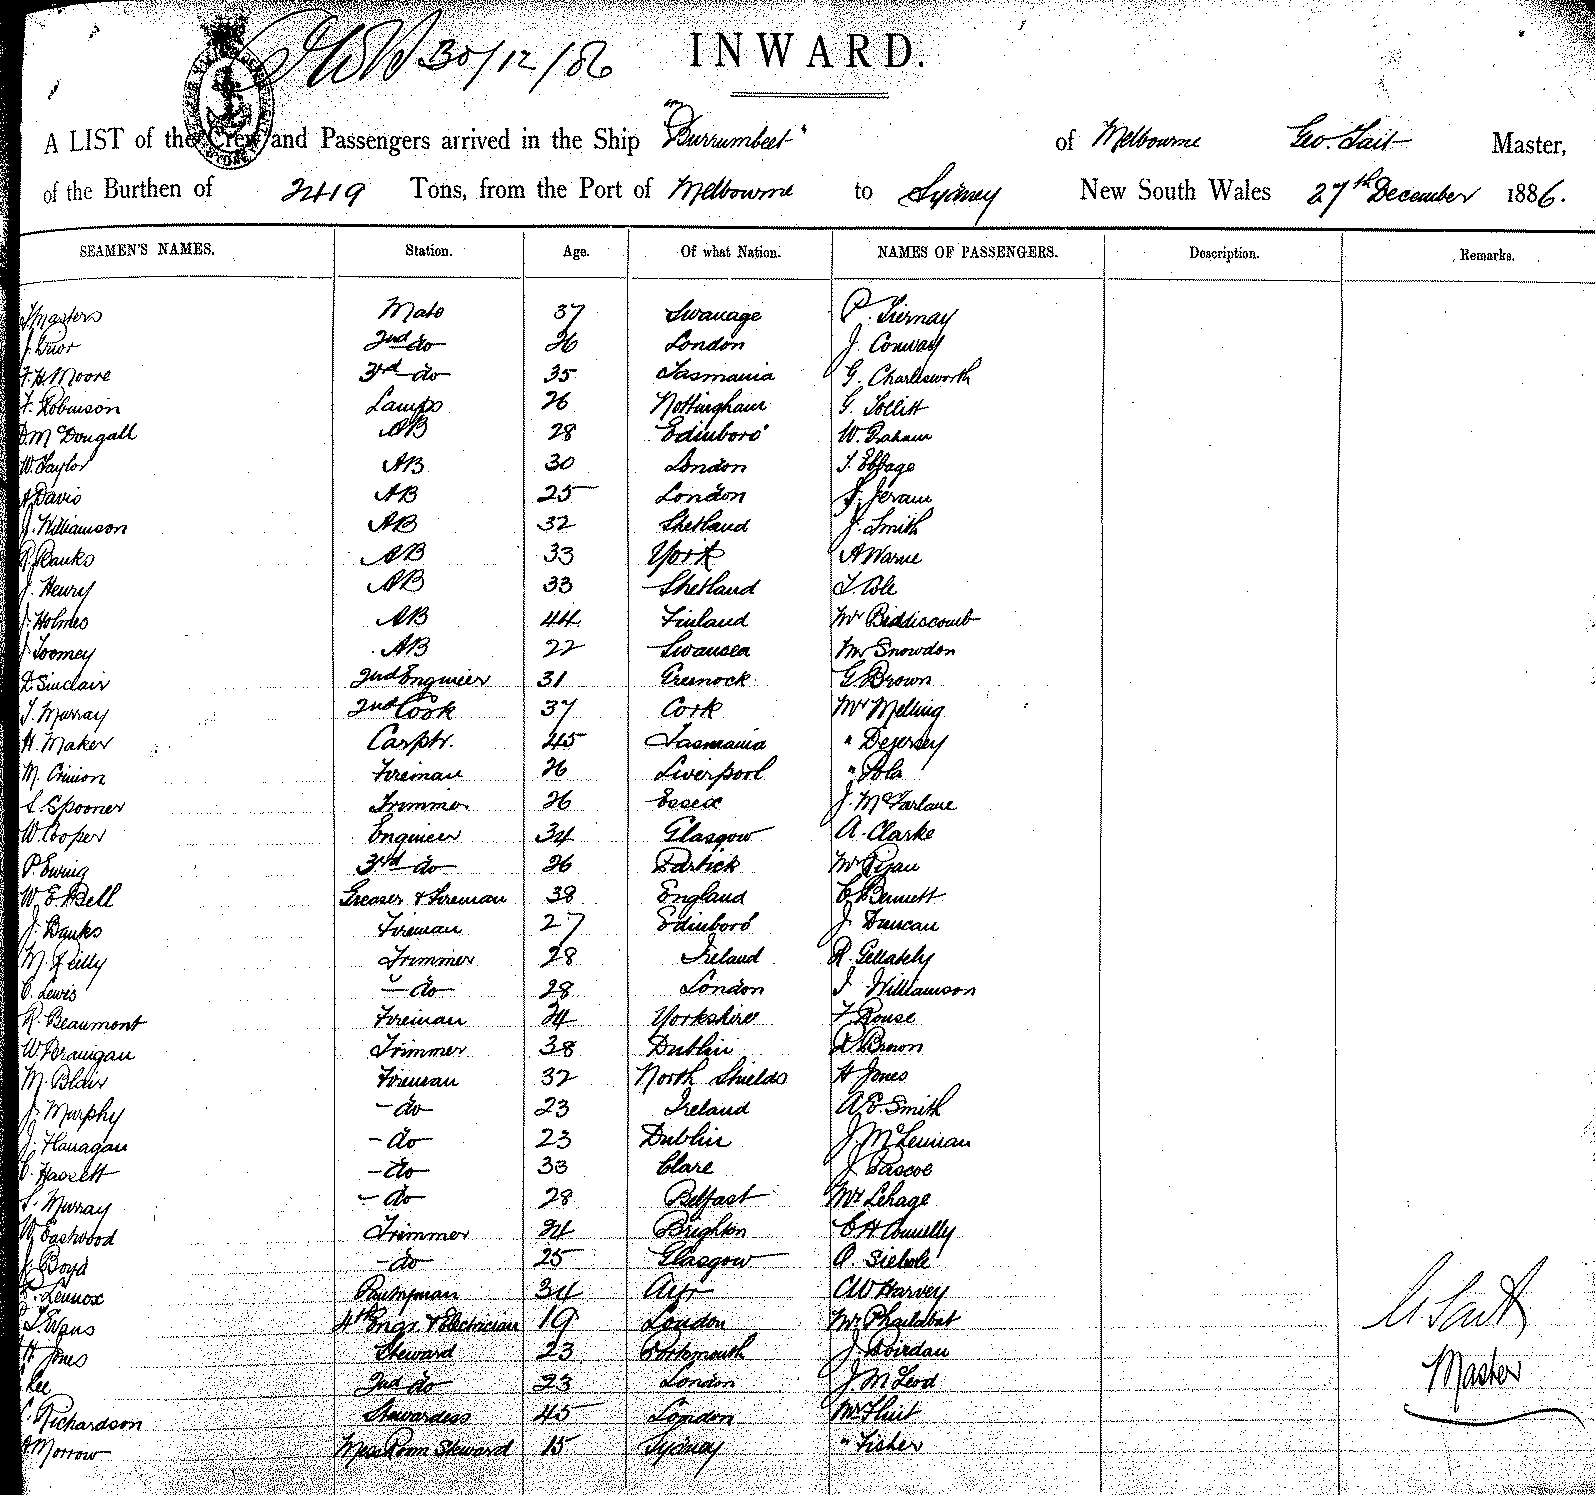 30/12/86
INWARD.
A LIST of the Crew and Passengers arrived in the Ship "Burrumbeet" of Melbourne Geo. Tait Master,
of the Burthen of 2419 Tons, from the Port of Melbourne to Sydney New South Wales 27th December 1886.
SEAMEN'S NAMES. Station. Age. Of what Nation. NAMES OF PASSENGERS. Description. Remarks.
Masters Mate 37 Swanage P. Tiernay
J. Prior 2nd do 26 London J. Conway
F.H. Moore 3rd do 35 Tasmania G. Charlesworth
F. Robinson Lamps 26 Nottingham G. Tollitt
D. McDougall AB 28 Edinboro' W. Graham
W. Taylor AB 30 London T. Ebbage
A Davis AB 25 London J. Jeram
J. Williamson AB 32 Shetland J. Smith
R. Banks AB 33 York A Warne
J. Henry AB 33 Shetland T. Cole
J. Holmes AB 44 Finland Mr Biddiscomb
J Toomey AB 22 Swansea Mr Snowdon
D. Sinclair 2nd Engineer 31 Greenock G Brown
T. Murray 2nd Cook 37 Cork Mr Melling
H. Maker Carptr. 45 Tasmania " Dejersey
M. Crinion Fireman 26 Liverpool " Pola
S. Spooner Trimmer 26 Essex J. McFarlane
W Cooper Engineer 34 Glasgow A. Clarke
P. Ewing 3rd do 26 Partick Mr Ryan
W. E. Bell Greaser & Fireman 38 England C Bennett
J. Banks Fireman 27 Edinboro' J. Duncan
M. Reilly Trimmer 28 Ireland R. Gellately
C. Lewis - do 28 London J Williamson
R. Beaumont Fireman 24 Yorkshire F Rouse
W Branigan Trimmer 38 Dublin D Brown
M. Blair Fireman 32 North Shields H Jones
J. Murphy - do 23 Ireland A E. Smith
J. Flanagan - do 23 Dublin J. McLennan
C. Hassett - do 33 Clare J. Pascoe
S. Murray - do 28 Belfast Mr Lehage
W Eastwood Trimmer 24 Brighton C H Connelly
J. Boyd - do 25 Glasgow A Siebole
Lennox Pantryman 34 Ayr C W Harvey
T. Evans 4th Engr & Electrician 19 London Mr
H Jones Steward 23 Portsmouth J. Doirdan
Lee 2nd do 23 London J. McLeod
Richardson Stewardess 45 London Mr Flint
Morrow Mess Room Steward 15 Sydney " Fisher
G Tait
Master